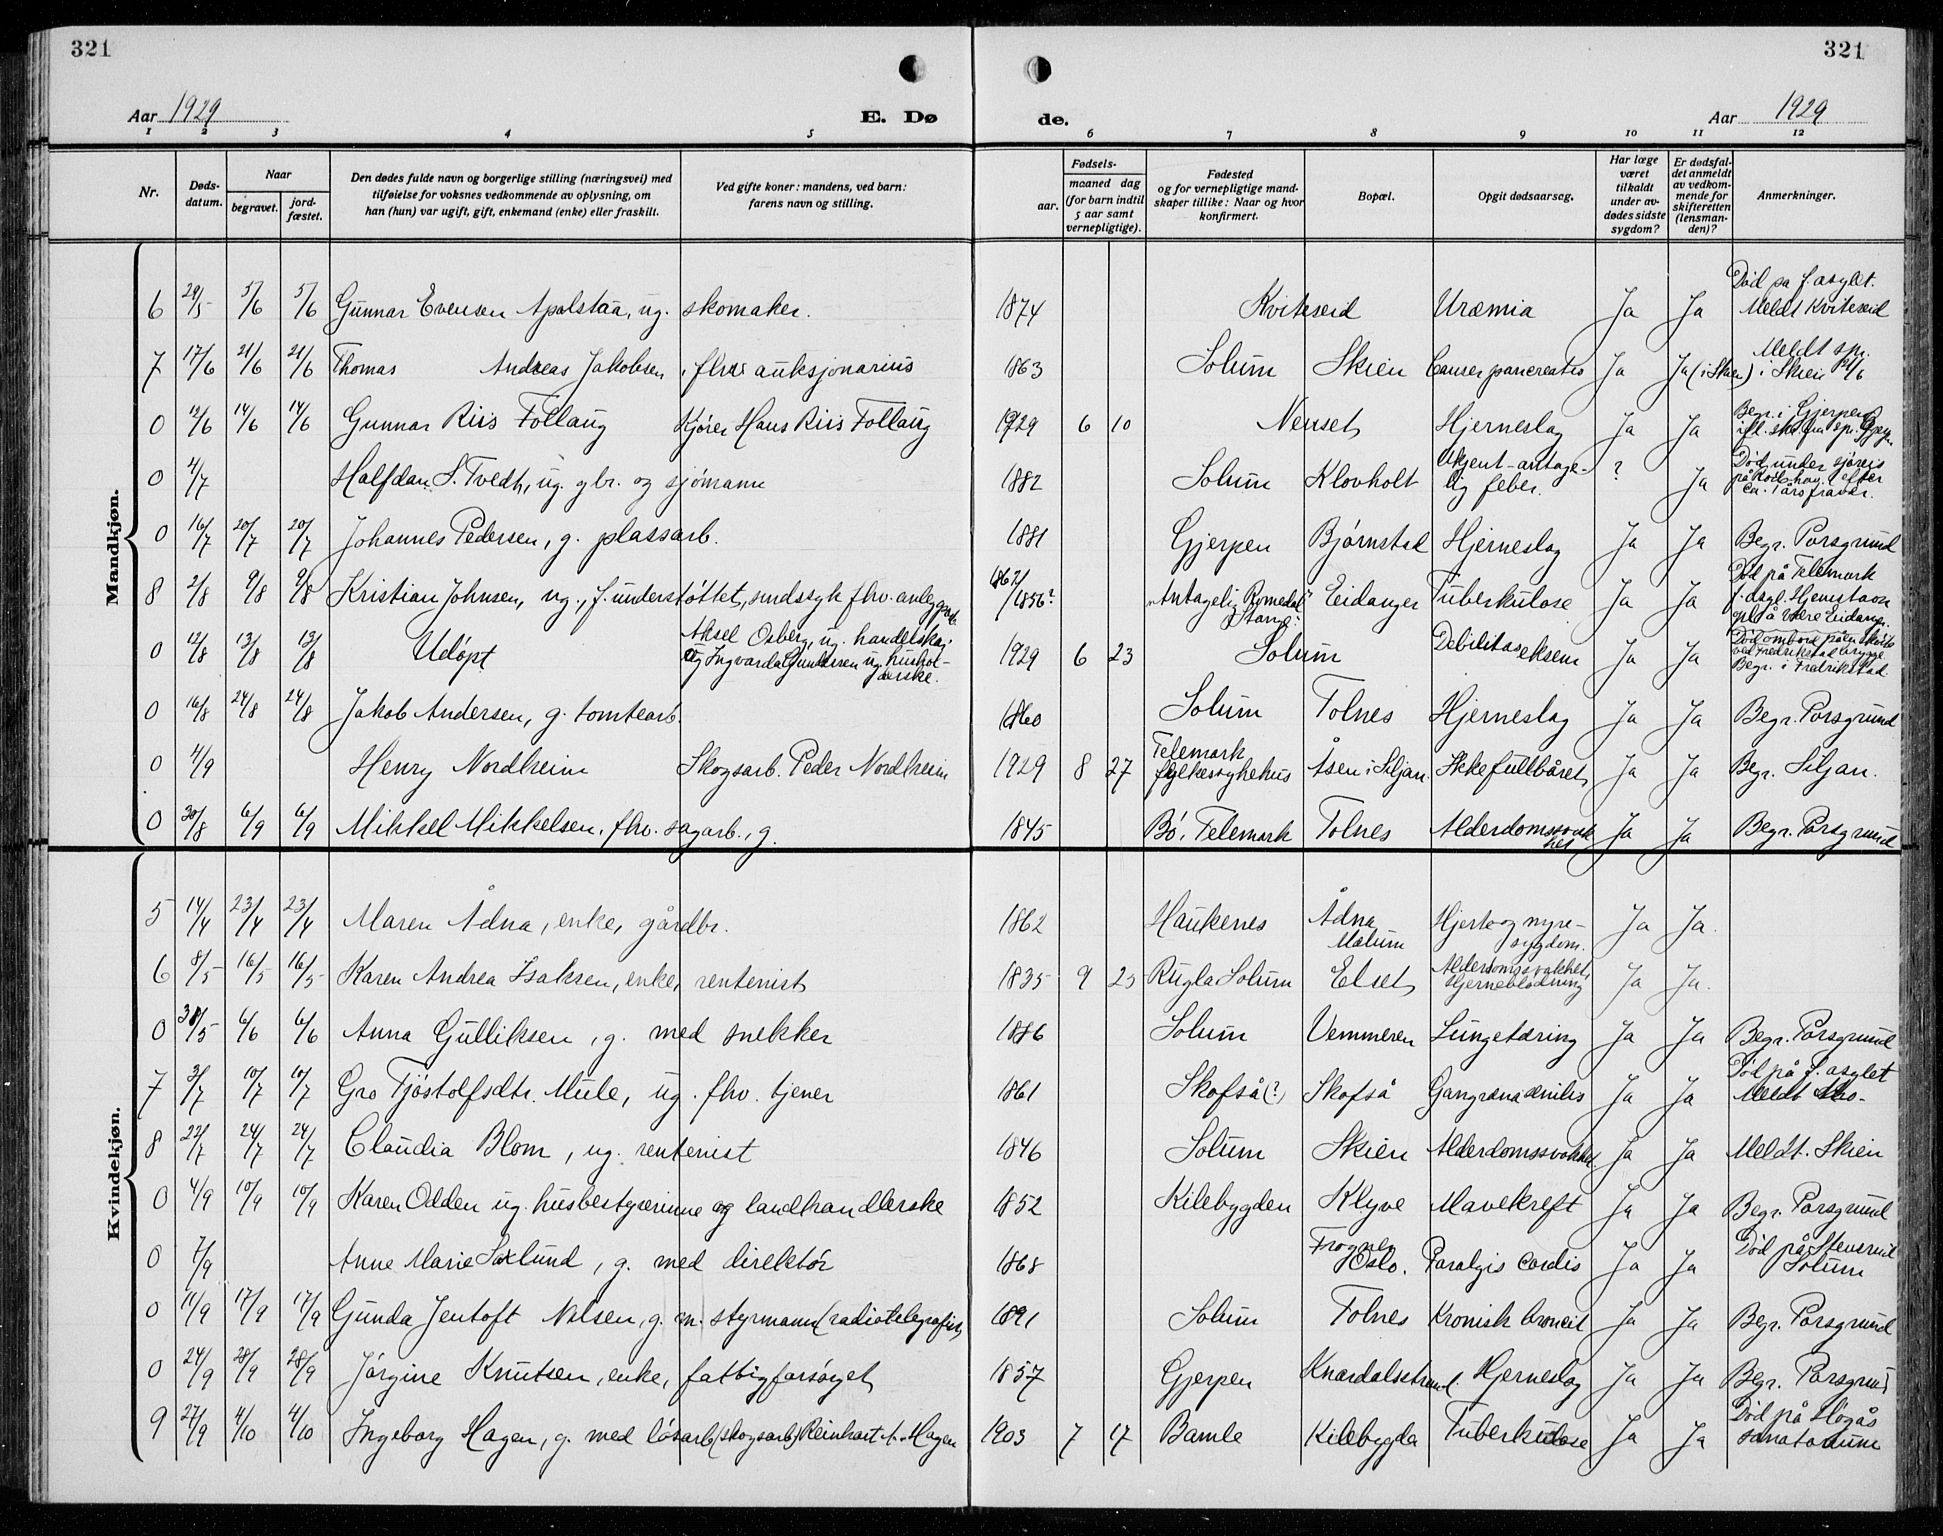 321
321
Aar 1929
E. Dø
de.
Aar 1929
1 2 3 4 5 6 7 8 9 10 11 12
Nr.
Døds-datum.
Naar
begravet.
jord-fæstet.
Den dødes fulde navn og borgerlige stilling (næringsvei) med
tilføielse for voksnes vedkommende av oplysning, om
han (hun) var ugift, gift, enkemand (enke) eller fraskilt.
Ved gifte koner: mandens, ved barn:
farens navn og stilling.
Fødsels-
aar.
maaned dag
(for barn indtil
5 aar samt
vernepligtige).
Fødested
og for vernepligtige mand-
skaper tillike: Naar og hvor
konfirmert.
Bopæl.
Opgit dødsaarsag.
Har læge
været
tilkaldt
under av-
dødes sidste
sygdom?
Er dødsfal-
det anmeldt
av vedkom-
mende for
skifteretten
(lensman-
den)?
Anmerkninger.
Mandkjøn.
6 29/5 5/6 5/6 Gunnar Evensen Apalstaa, ug. skomaker. 1874 Kviteseid Uræmia Ja Ja Død pa f. asylet. Meldt Kviteseid
7 17/6 21/6 21/6 Thomas Andreas Jakobsen, fhv. auksjonarius 1863 Solum Skien Cancer pancreatis Ja Ja (i Skien) Meldt spr. i Skien 21/6
0 12/6 14/6 14/6 Gunnar Riis Follaug Kjører Hans Riis Follaug 1929 6 10 Nenset Hjerneslag Ja Ja Begr. i Gjerpen
0 4/7 Halfdan S. Tvedt, ug. gbr. og sjømann 1882 Solum Klovholt Ukjent - antage-lig feber. ? Ja Død under sjøreis på efter ca. 1 års fravær.
0 16/7 20/7 20/7 Johannes Pedersen, g. plassarb. 1881 Gjerpen Bjørnstad Hjerneslag Ja Ja Begr. Porsgrund
8 2/8 9/8 9/8 Kristian Johnsen, ug., f. understøttet, sindssyk fhv. anleggsarb. 1867/1856? "Antagelig Romedal" Stange? Eidanger Tuberkulose Ja Ja Død på Telemark f. asyl. Hjemstavn opl. å være Eidanger.
0 12/8 13/8 13/8 Udøpt Aksel Osberg, ug. handelskaj. og Ingvarda Gundersen ug. hushol-derske. 1929 6 23 Solum Debilitas eksem Ja Ja Død ombord på en skøite ved Fredrikstad brygge Begr. i Fredrikstad
0 16/8 24/8 24/8 Jakob Andersen, g. tomtearb. 1860 Solum Tolnes Hjerneslag Ja Ja Begr. Porsgrund
0 4/9 Henry Nordheim Skogsarb. Peder Nordheim 1929 8 27 Telemark fylkessykehus Åsen i Siljan. Ikke fullbåret Ja Ja Begr. Siljan.
0 30/8 6/9 6/9 Mikkel Mikkelsen, fhv. sagarb., g. 1845 Bø, Telemark Tolnes Alderdomssvakhet Ja Ja Begr. Porsgrund
Kvindekjøn.
5 14/4 23/4 23/4 Maren Ådna, enke, gårdbr. 1862 Haukenes Ådna Mælum Hjerte og nyre-sygdom. Ja Ja.
6 8/5 16/5 16/5 Karen Andrea Isaksen, enke, rentenist 1835 9 25 Rugla Solum Elset Alderdomssvakhet, Hjerneblødning Ja Ja.
0 31/5 6/6 6/6 Anna Gulliksen, g. med snekker 1886 Solum Vemmeren Lungetæring Ja Ja Begr. Porsgrund
7 3/7 10/7 10/7 Gro Tjøstolfsdtr. Mule, ug. fhv. tjener 1861 Skofså (?) Skofså Gangræna senilis Ja Ja Død på f. asylet Meldt
8 22/7 24/7 24/7 Claudia Blom, ug. rentenist 1846 Solum Skien Alderdomssvakhet. Ja Ja Meldt. Skien
0 4/9 10/9 10/9 Karen Odden ug. husbestyrerinne og landhandlerske 1852 Kilebygden Klyve Mavekreft Ja Ja Begr. Porsgrund
0 7/9 Anne Marie Saxlund, g. med direktør 1868 Frogner Oslo. Paralysis cordis Ja Ja Død på Solum
0 11/9 17/9 17/9 Gunda Jentoft Nilsen, g. m. styrmann (radiotelegrafist) 1891 Solum Tolnes Kronisk broncit Ja Ja Begr. Porsgrund
0 24/9 28/9 28/9 Jørgine Knutsen, enke, fattigforsørget 1857 Gjerpen Knardalstrand. Hjerneslag Ja Ja Begr. Porsgrund
9 27/9 4/10 4/10 Ingeborg Hagen, g. med løsarb. (skogsarb) Reinhart Hagen 1903 7 17 Bamle Kilebygda Tuberkulose Ja Ja Død på Høgås sanatorium